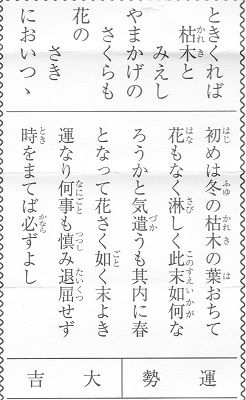 ときくれば
枯木と
みえし
やまかげの
さくらも
花の
さき
においつゝ
初めは冬の枯木の葉おちて
花もなく淋しく此末如何な
ろうかと気遣うも其内に春
となって花さく如く末よき
運なり何事も慎み退屈せず
時をまてば必ずよし
運勢
大吉